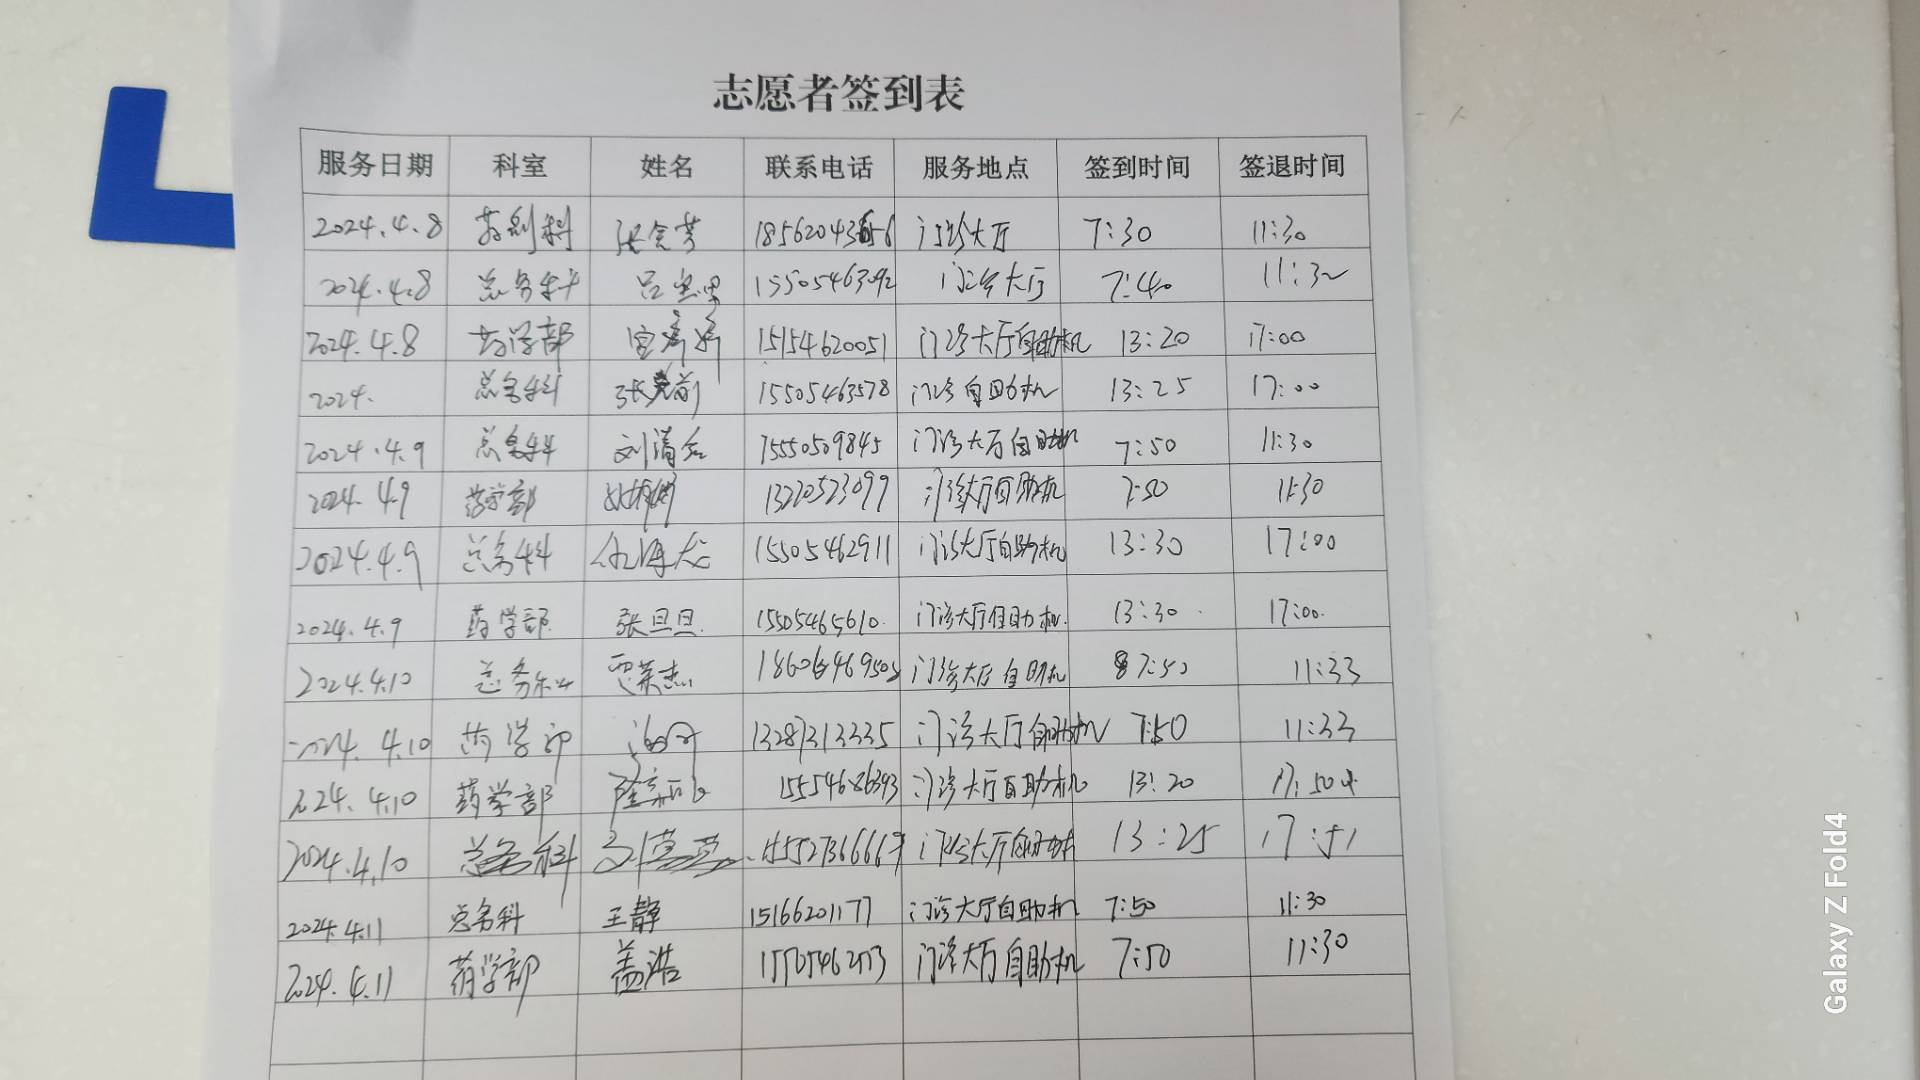 志愿者签到表
服务日期 科室 姓名 联系电话 服务地点 签到时间 签退时间
2024.4.8 药剂科 门诊大厅 7:30 11:30
2024.4.8 总务科 15505463092 门诊大厅 7:40 11:30
2024.4.8 药学部 15154620051 门诊大厅自助机 13:20 17:00
2024. 总务科 15505463578 门诊自助机 13:25 17:00
2024.4.9 总务科 15550509845 门诊大厅自助机 7:50 11:30
2024.4.9 药学部 13220523099 门诊大厅自助机 7:50 11:30
2024.4.9 总务科 15505462911 门诊大厅自助机 13:30 17:00
2024.4.9 药学部 张旦旦 15505465610 门诊大厅自助机 13:30 17:00
2024.4.10 总务科 贾荣杰 门诊大厅自助机 7:50 11:33
2024.4.10 药学部 13287313335 门诊大厅自助机 7:50 11:33
2024.4.10 药学部 15554686393 门诊大厅自助机 13:20
2024.4.10 总务科 门诊大厅自助机 13:25 17:51
2024.4.11 总务科 王静 15166201177 门诊大厅自助机 7:50 11:30
2024.4.11 药学部 盖浩 门诊大厅自助机 7:50 11:30
Galaxy Z Fold4